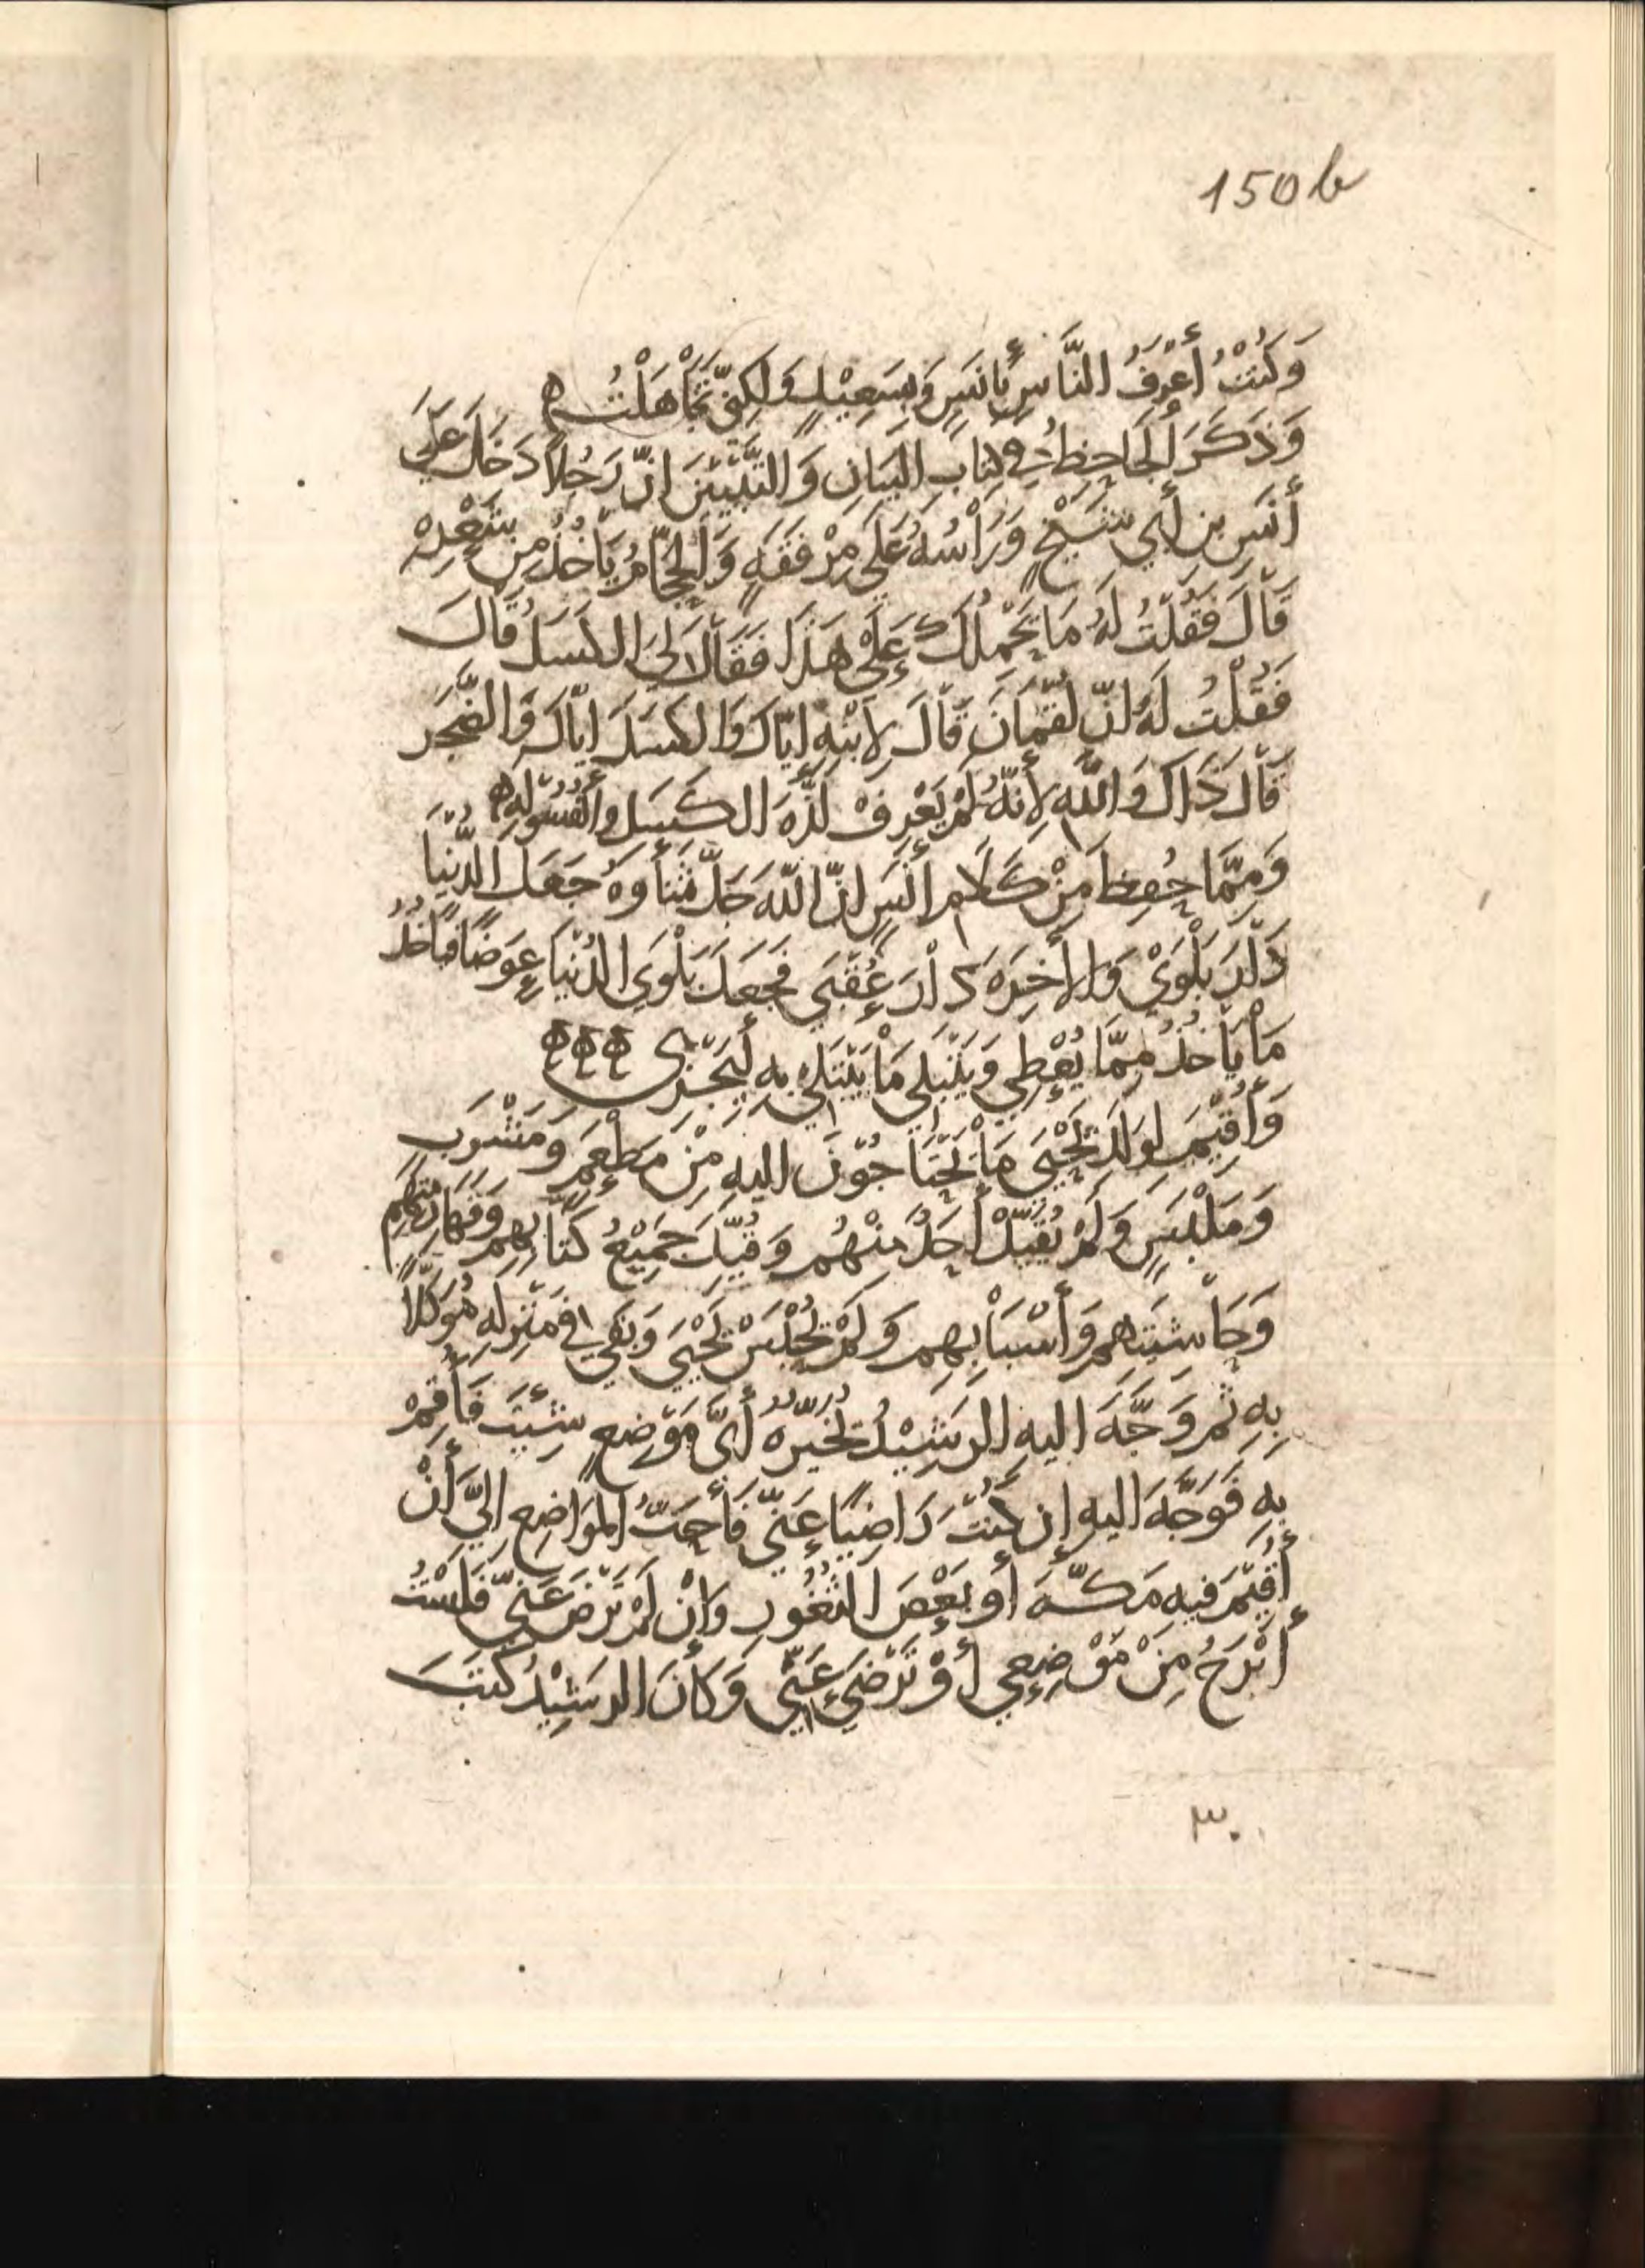 150b
وَكُنْتُ أَعْرَفُ النَّاسِ بِأَنَسٍ وَبِسَعِيْدٍ وَلَكِنِّي تَجَاْهَلْتُ ه
وَذَكَرَ الْجَاحِظُ فِي كِتَابِ البَيَانِ وَالتَّبْيِيْنَ انّ رَجُلاً دَخَلَ عَلَى
أَنَسِ بن أَبِي شَيْخٍ وَرَأْسُهُ عَلَي مِرْفَقَهٍ وَالحَجَّامُ يَأْخُذُ مِن شَعْرِهْ
قَاْلَ فَقُلْتُ لَهُ مَا يَحْمِلُكَ عَلَيْ هَذَا فَقَاْلَ لِيَ الكَسَلُ قَالَ
فَقُلْتُ لَهُ انّ لُقْمَانَ قَاْلَ لِابْنِهِ ايّاكَ وَالكَسَلَ ايّاكَ وَالضَّجَر
قَاْلَ ذَاكَ وَاللّهِ لِأَنَّهُ لَمْ يَعْرِفْ لَذَّهَ الكَسَلِ وَالفُسُوْلَهِ ه
وَمِمَّا حُفِظَ مِنْ كَلَامِ أَنَسٍ انّ اللّهَ جَلَّ ثَنَأوهُ جَعَلَ الدُّنْيَا
دَاْرَ بَلْوَيْ وَالاخِرَهَ دَاْرَ عُقْبَي فَجَعَلَ بَلْوَي الدُنْيَا عِوَضًا فَيَأخُذُ
مَاْ يَأخُذُ مِمَّا يُعْطِي وَيَبْتَلِي مَاْ يَبْتَلِي بِهِ لِيَجْزِي ه ه ه
وَأُقِيْمَ لِوَلَدِ يَحْيَي مَاْ يَحْتَاجُوْنَ اليهِ مِنْ مَطْعَمٍ وَمَشْرَبٍ
وَمَلْبَسٍ وَلَمْ يُقَيَّدْ أَحَدٌ مِنْهُم وَقُيِّدَ جَمِيْعُ كُتّابِهِم وَقَهَارِمَتِهِم
وَحَاْشِيَتِهم وَأَسْبَاْبِهِم وَلَمْ يُحْبَسْ يَحْيَي وَبَقِي في مَنْزِلِهِ مُوَكَّلاً
بِهِ ثم وَجَّهَ اليهِ الرشِيْدُ يُخَيّرُهُ أَيَّ مَوْضِعٍ شِئْتَ فَأَقِمْ
بِهِ فَوَجَّهَ اليهِ إن كُنْتَ رَاضِيًا عَنِّي فَأَحَبُّ المَوَاضِعِ اليَّ أَنْ
أُقِيْمَ فيهِ مَكّهَ أو بَعْضَ الثُغُورِ وَانْ لَمْ تَرْضَ عَنِّي فَلَسْتُ
أَبْرَحُ مِنْ مَوْضِعِي أَوْ تَرْضَي عَنِّي وَكَانَ الرشِيْدُ كَتَبَ
٣٠